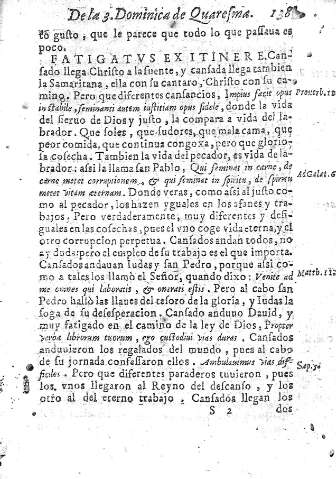 De la 3. Dominica de Quaresma. 138
to gusto, que le parece que todo lo que passaua es
poco.
FATIGATVS EX ITINERE, Can-
sado llega Christo a la fuente, y cansada llega tambien
la Samaritana, ella con su cantaro, Christo con su ca-
mino. Pero que diferentes cansancios, Impius facit opus
instabile, seminanti autem iustitiam opus fidele, donde la vida
del sieruo de Dios y justo, la compara a vida del la-
brador. Que soles, que sudores, que mala cama, que
peor comida, que continua congoxa, pero que glorio-
sa cosecha. Tambien la vida del pecador, es vida de la-
brador: assi la llama san Pablo, Qui seminat in carne, de
carne metet corruptionem, & qui seminat in spiritu, de spiritu
metet vitam æternam. Donde veras, como assi al justo co-
mo al pecador, los hazen yguales en los afanes y tra-
bajos. Pero verdaderamente, muy diferentes y desi-
guales en las cosechas, pues el vno coge vida eterna, y el
otro corrupcion perpetua. Cansados andan todos, no
ay duda: pero el empleo de su trabajo es el que importa.
Cansados andauan Iudas y san Pedro, porque assi co-
mo a tales los llamò el Señor, quando dixo: Venite ad
me omnes qui laboratis, & onerati estis. Pero al cabo san
Pedro hallò las llaues del tesoro de la gloria, y Iudas la
soga de su desesperacion. Cansado anduuo Dauid, y
muy fatigado en el camino de la ley de Dios, Propter
verba labiorum tuorum, ego custodiui vias duras. Cansados
anduuieron los regalados del mundo, pues al cabo
de su jornada confessaron ellos. Ambulauimus vias dif-
ficiles. Pero que diferentes paraderos tuuieron, pues
los vnos llegaron al Reyno del descanso, y los
otro al del eterno trabajo. Cansados llegan los
S 2 dos
Prouerb. 11
Ad Galat. 6
Matth. 11
Sap. 5.